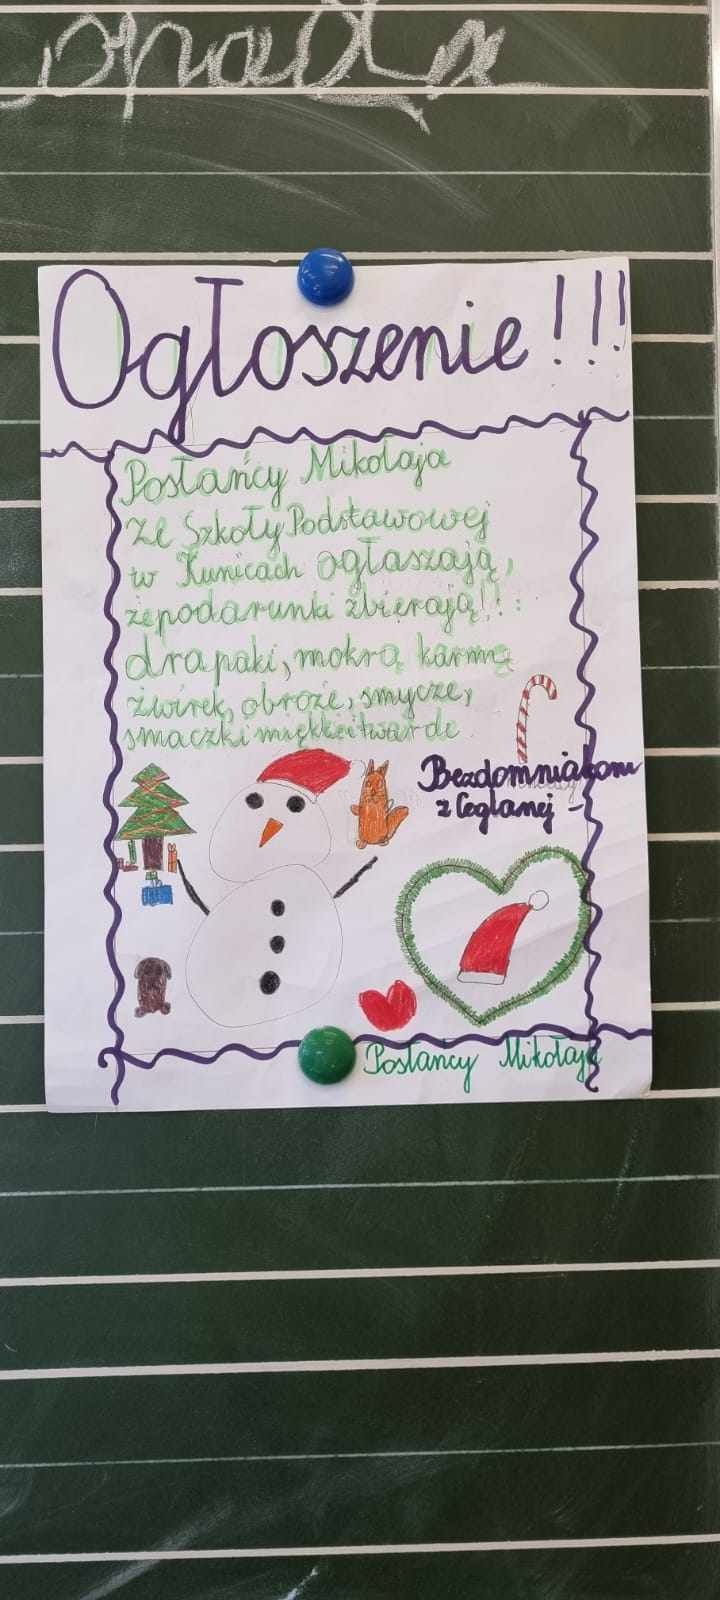 Ogłoszenie!!!
Posłańcy Mikołaja
ze Szkoły Podstawowej
w Kunicach ogłaszają,
że podarunki zbierają!:
drapaki, mokrą karmę
żwirek, obroże, smycze,
smaczki miękkie i twarde
Bezdomniakom
z Ceglanej -
Posłańcy Mikołaja